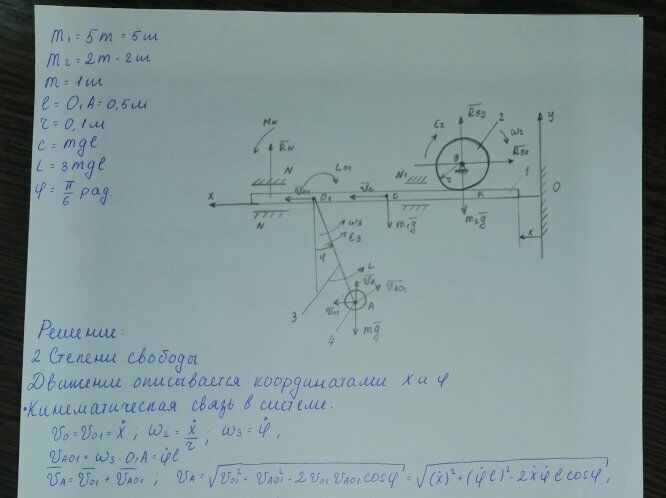 m₁ = 5m = 5ш
m₂ = 2m = 2ш
m = 1ш
l = O₁A = 0,5м
r = 0,1м
c = mgl
L = 3mgl
φ = π/6 рад
M_N
R̅_N
N
L_O1
v̅_O1
O₁
N
x
v̅_C
C
N₁
ε₂
R̅_By
2
ω₂
B
R̅_Bx
r
K
1
y
O
x
m₁g̅
m₂g̅
ω₃
ε₃
φ
L
v̅_A
v̅_AO1
v̅_O1
A
3
4
mg̅
Решение:
2 Степени свободы
Движение описывается координатами x и φ
• Кинематическая связь в системе:
v_O = v_O1 = ẋ ; ω₂ = ẋ/r ; ω₃ = φ̇ ,
v_AO1 = ω₃ · O₁A = φ̇l
v̅_A = v̅_O1 + v̅_AO1 ; v_A = √(v_O1² + v_AO1² - 2v_O1 v_AO1 cosφ) = √((ẋ)² + (φ̇l)² - 2ẋφ̇l cosφ) ;